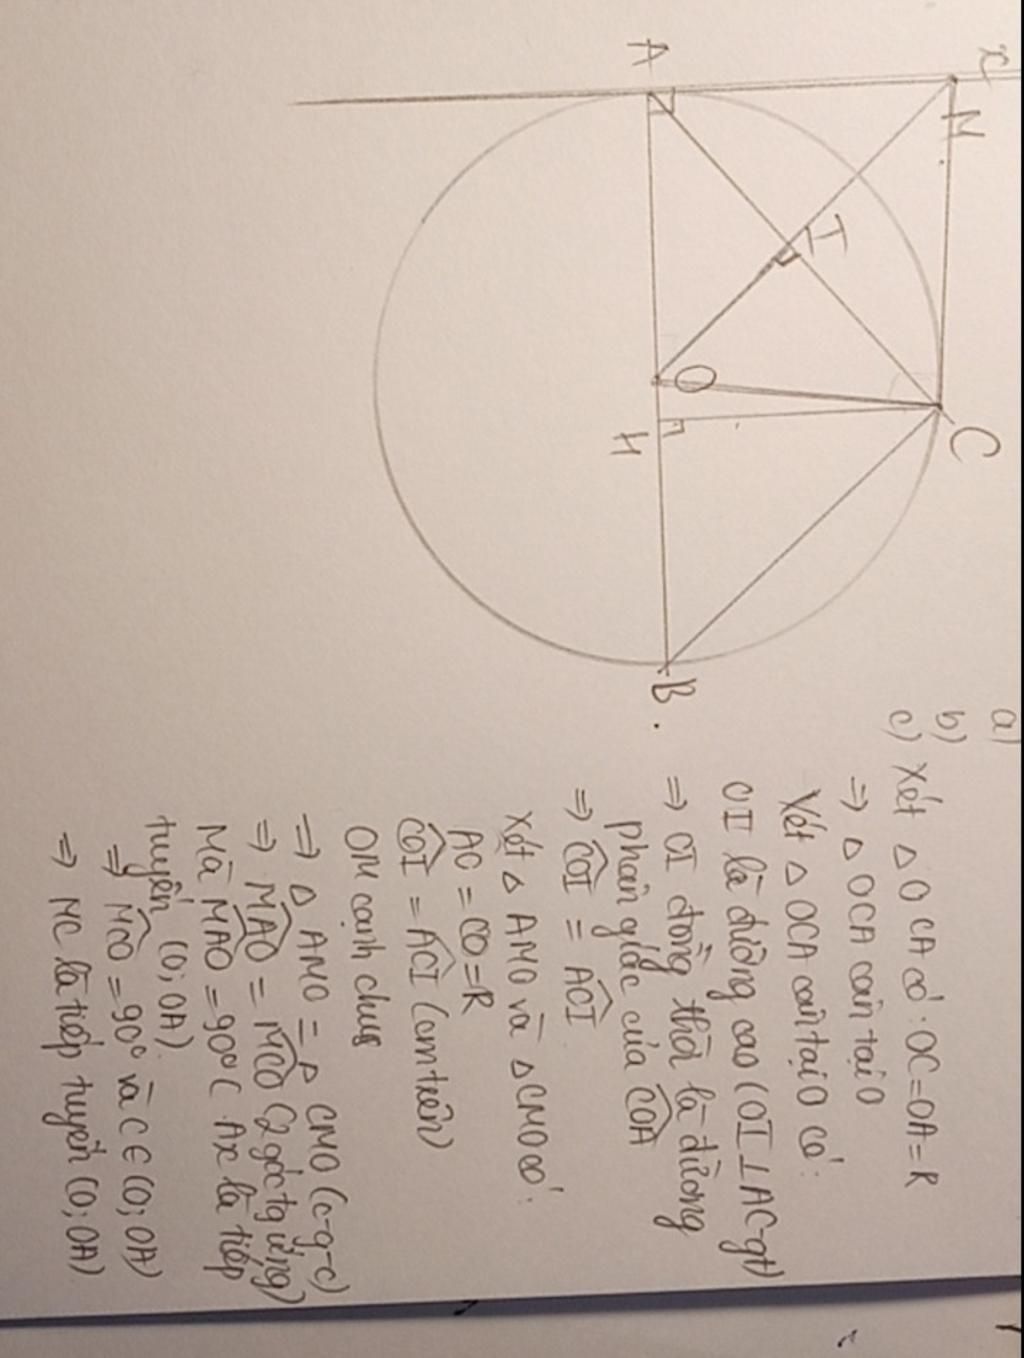 x
A
M
I
O
C
H
B
a)
b)
c) Xét △ OCA có: OC=OA=R
⇒ △ OCA cân tại O
Xét △ OCA cân tại O có:
OI là đường cao (OI ⊥ AC-gt)
⇒ OI đồng thời là đường
phân giác của COA
⇒ COI = ACI
Xét △ AMO và △ CMO có:
AC = CO = R
COI = ACI (cm trên)
OM cạnh chung
⇒ △ AMO = △ CMO (c-g-c)
⇒ MAO = MCO (2 góc tg ứng)
Mà MAO = 90° ( Ax là tiếp
tuyến (O; OA)
⇒ MCO = 90° và C ∈ (O; OA)
⇒ MC là tiếp tuyến (O; OA)